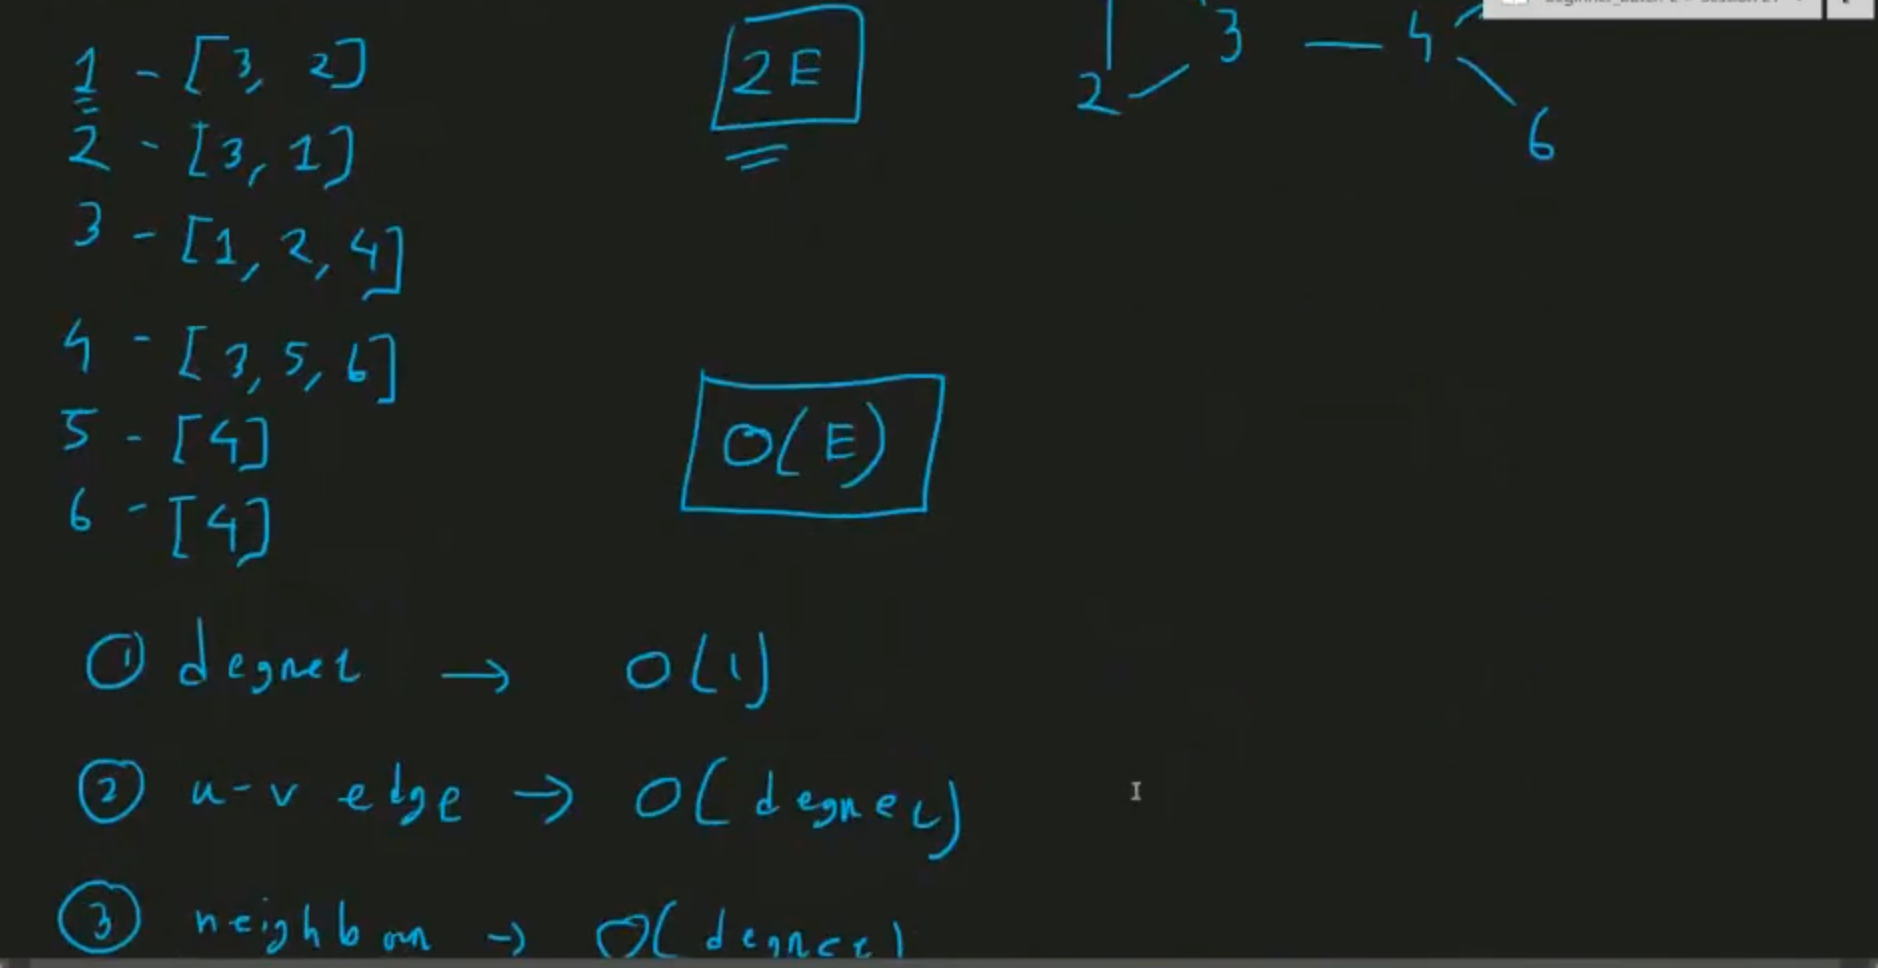 1 - [3, 2]
2 - [3, 1]
3 - [1, 2, 4]
4 - [3, 5, 6]
5 - [4]
6 - [4]
2E
O(E)
3 — 4
2
6
① degree → O(1)
② u-v edge → O(degree)
③ neighbour → O(degree)